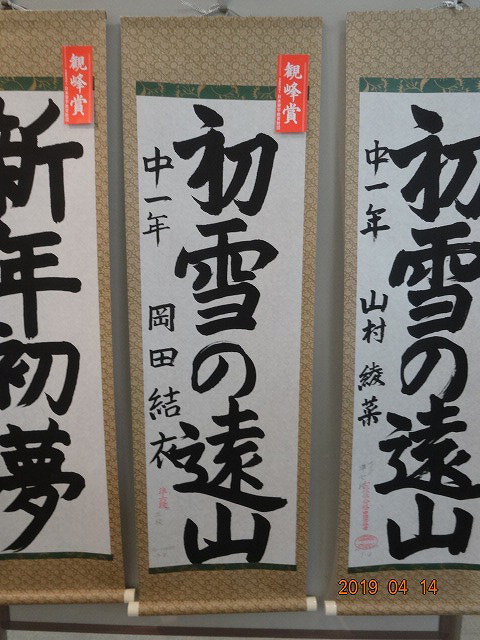 観峰賞
新年初夢
観峰賞
初雪の遠山
中一年 岡田結衣
初雪の遠山
中一年 山村綾菜
2019 04 14